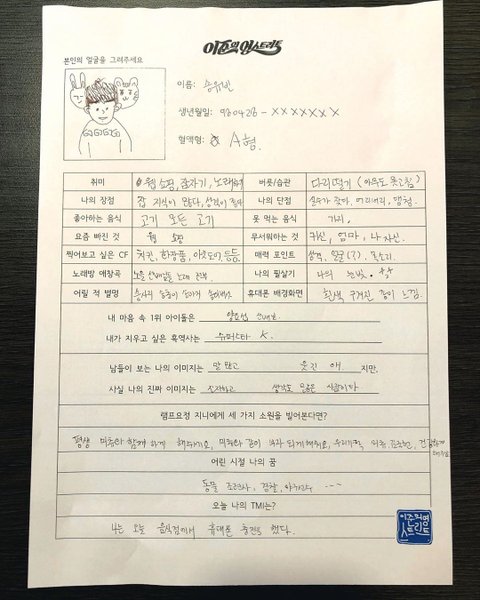 이준의 영스트리트
본인의 얼굴을 그려주세요
이름: 송유빈
생년월일: 980428-XXXXXXX
혈액형: A형
취미 웹 쇼핑, 잠자기, 노래 버릇/습관 다리떨기 (아무도 못고침)
나의 장점 잡 지식이 많다, 나의 단점 실수가 잦아, 어리버리, 맹청
좋아하는 음식 고기 모든 고기 못 먹는 음식 가지,
요즘 빠진 것 웹 쇼핑 무서워하는 것 귀신, 엄마, 나 자신.
찍어보고 싶은 CF 치킨, 화장품, 아웃도어 등등 매력 포인트 성격, 얼굴(?), 목소리
노래방 애창곡 노을 선배님들 노래 전체 나의 필살기 나의 눈빛.
어릴 적 별명 휴대폰 배경화면 흰색 구겨진 종이 느낌.
내 마음 속 1위 아이돌은 양요섭 선배님
내가 지우고 싶은 흑역사는 슈퍼스타 K.
남들이 보는 나의 이미지는 말 많고 웃긴 애 지만,
사실 나의 진짜 이미지는 소심하고 생각도 많은 사람이다
램프요정 지니에게 세 가지 소원을 빌어본다면?
평생 음악 함께 하게 해주세요, 우리가족 건강하게 해주세요
어린 시절 나의 꿈
동물 조련사, 경찰, 야구선수 ---
오늘 나의 TMI는?
나는 오늘 음식점에서 휴대폰 충전을 했다.
이준의 영스트리트